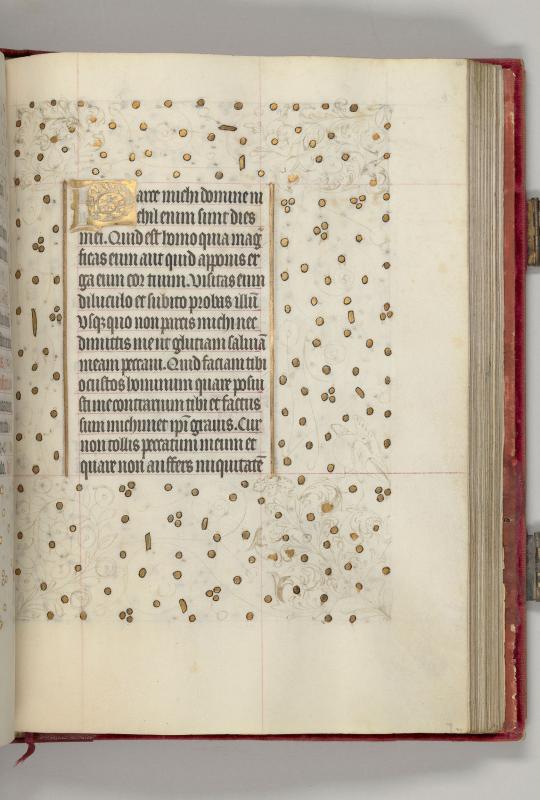 Parce michi domine ni
chil enim sunt dies
mei. Quid est homo quia mag
ficas eum aut quid apponis er
ga eum cor tuum. Visitas eum
diluculo et subito probas illū
Vsq̄ quo non parcis michi nec
dimittis me ut glutiam saluiā
meam peccaui. Quid faciam tibi
o custos hominum quare posui
sti me contrarium tibi et factus
sum michimet ip̄i grauis. Cur
non tollis peccatum meum et
quare non auffers iniquitatē